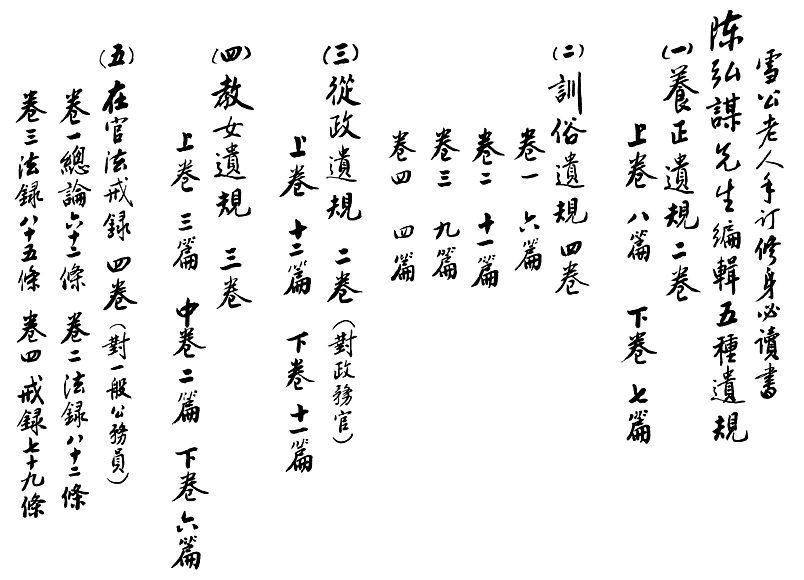 雪公老人手订修身必讀書
陈弘謀先生編輯五種遺規
(一)養正遺規二卷
上卷 八篇 下卷 七篇
(二)訓俗遺規四卷
卷一 六篇
卷二 十一篇
卷三 九篇
卷四 四篇
(三)從政遺規 二卷(對政務官)
上卷 十二篇 下卷 十一篇
(四)教女遺規 三卷
上卷 三篇 中卷 二篇 下卷 六篇
(五)在官法戒録 四卷(對一般公務員)
卷一總論六十二條 卷二法録八十二條
卷三法録八十五條 卷四戒録七十九條